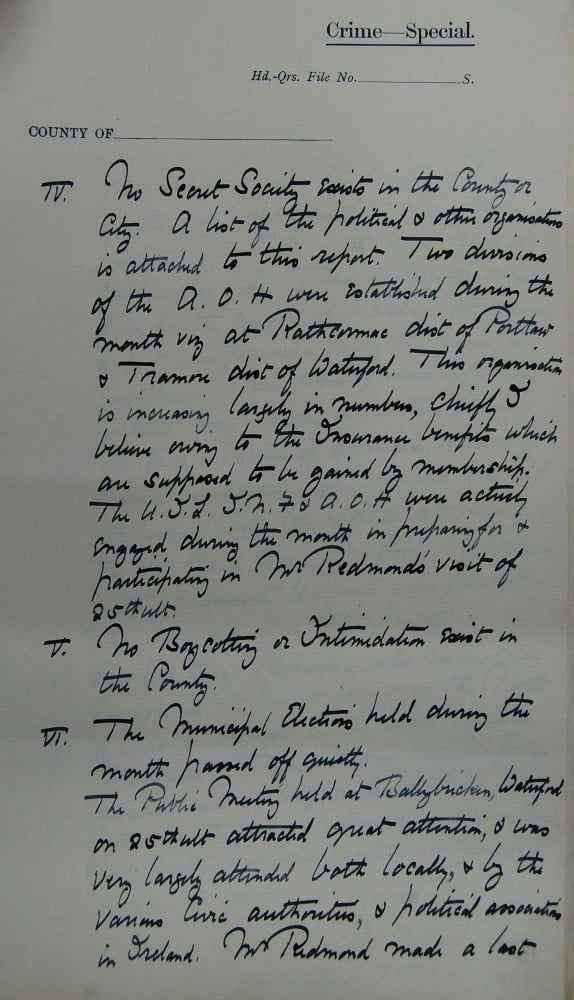 Crime—Special.
Hd.-Qrs. File No. S.
COUNTY OF
IV. No Secret Society exists in the County or
City. A list of the political & other organisations
is attached to this report. Two divisions
of the A. O. H were established during the
month viz at Rathcormac dist of Portlaw
& Tramore dist of Waterford. This organisation
is increasing largely in numbers, chiefly I
believe owing to the Insurance benefits which
are supposed to be gained by membership.
The U. I. L. I. N. F & A. O. H were actively
engaged during the month in preparing for &
participating in Mr Redmond's visit of
25th ult.
V. No Boycotting or Intimidation exist in
the County.
VI. The Municipal Elections held during the
month passed off quietly.
The Public Meeting held at Ballybricken, Waterford
on 25th ult attracted great attention, & was
very largely attended both locally, & by the
various Civic authorities, & political associations
in Ireland. Mr Redmond made a last